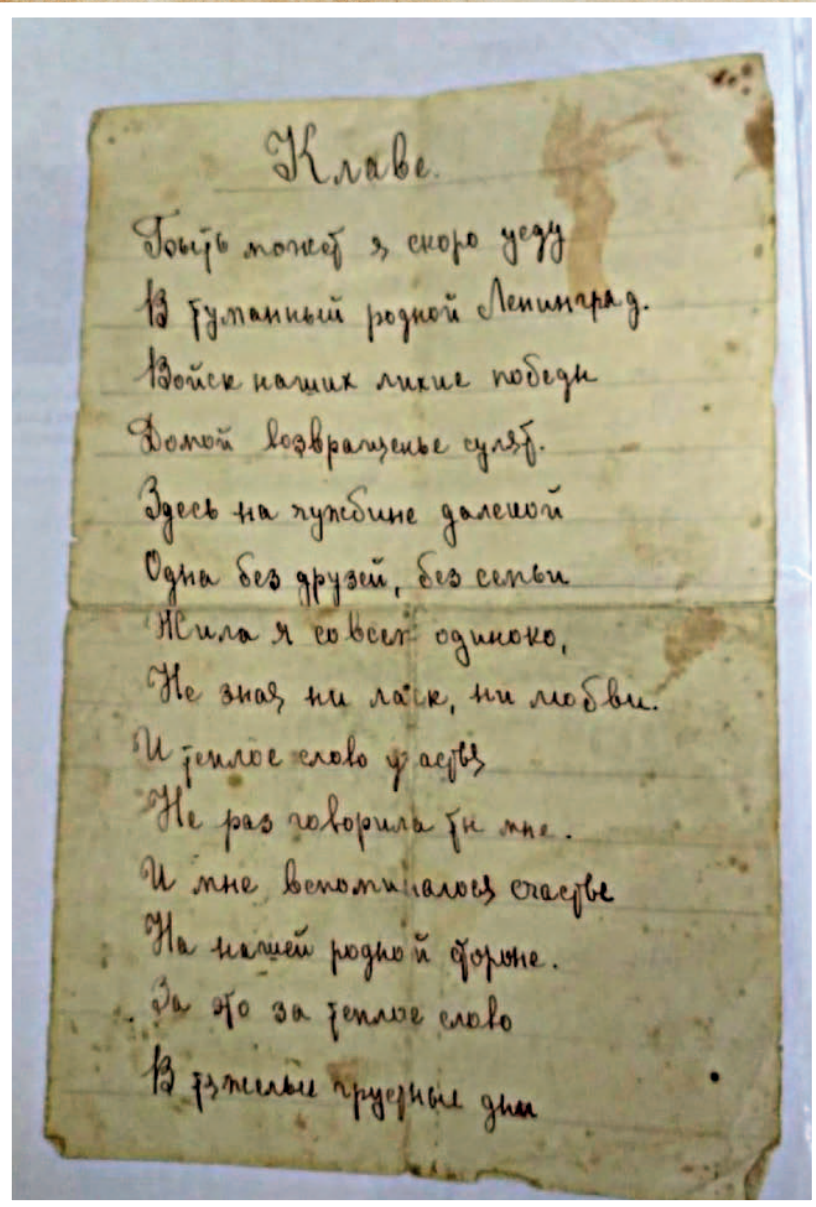 Клаве.
Быть может я скоро уеду
В туманный родной Ленинград.
Войск наших лихие победы
Домой возвращенье сулят.
Здесь на чужбине далекой
Одна без друзей, без семьи
Жила я совсем одиноко,
Не зная ни ласк, ни любви.
И теплое слово участья
Не раз говорила ты мне.
И мне вспоминалося счастье
На нашей родной стороне.
За это за теплое слово
В тяжелые грустные дни